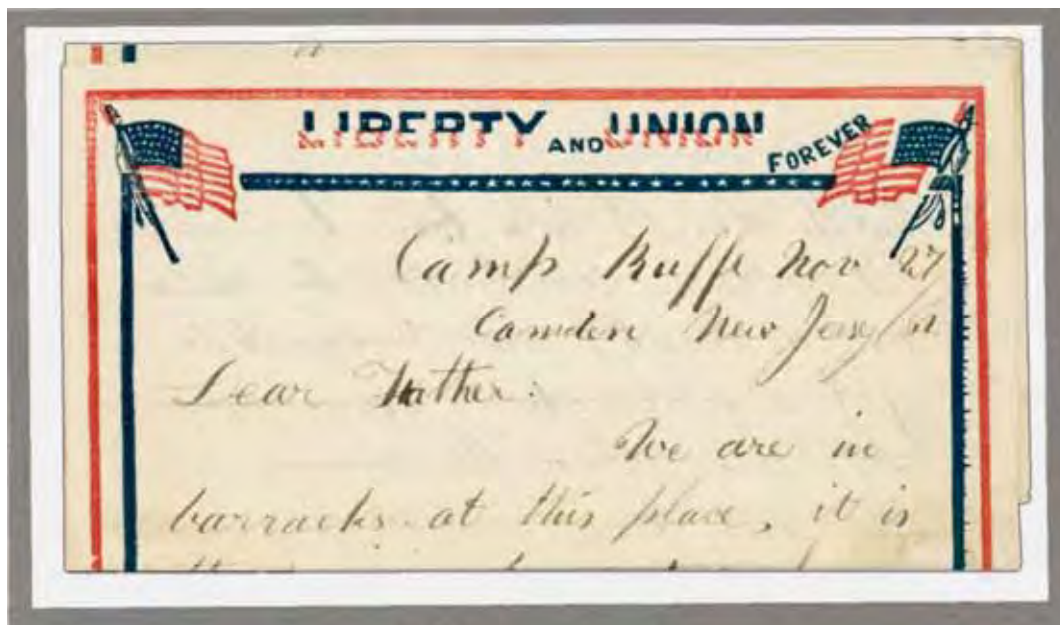 LIBERTY AND UNION FOREVER
Camp Nov 27
Camden New Jersey
Dear Father.
We are in
barracks at this place, it is